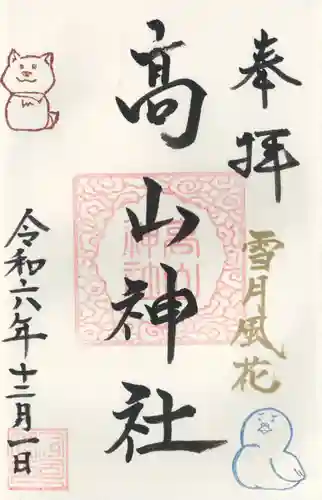 奉拝
雪月風花
高山神社
令和六年十二月一日